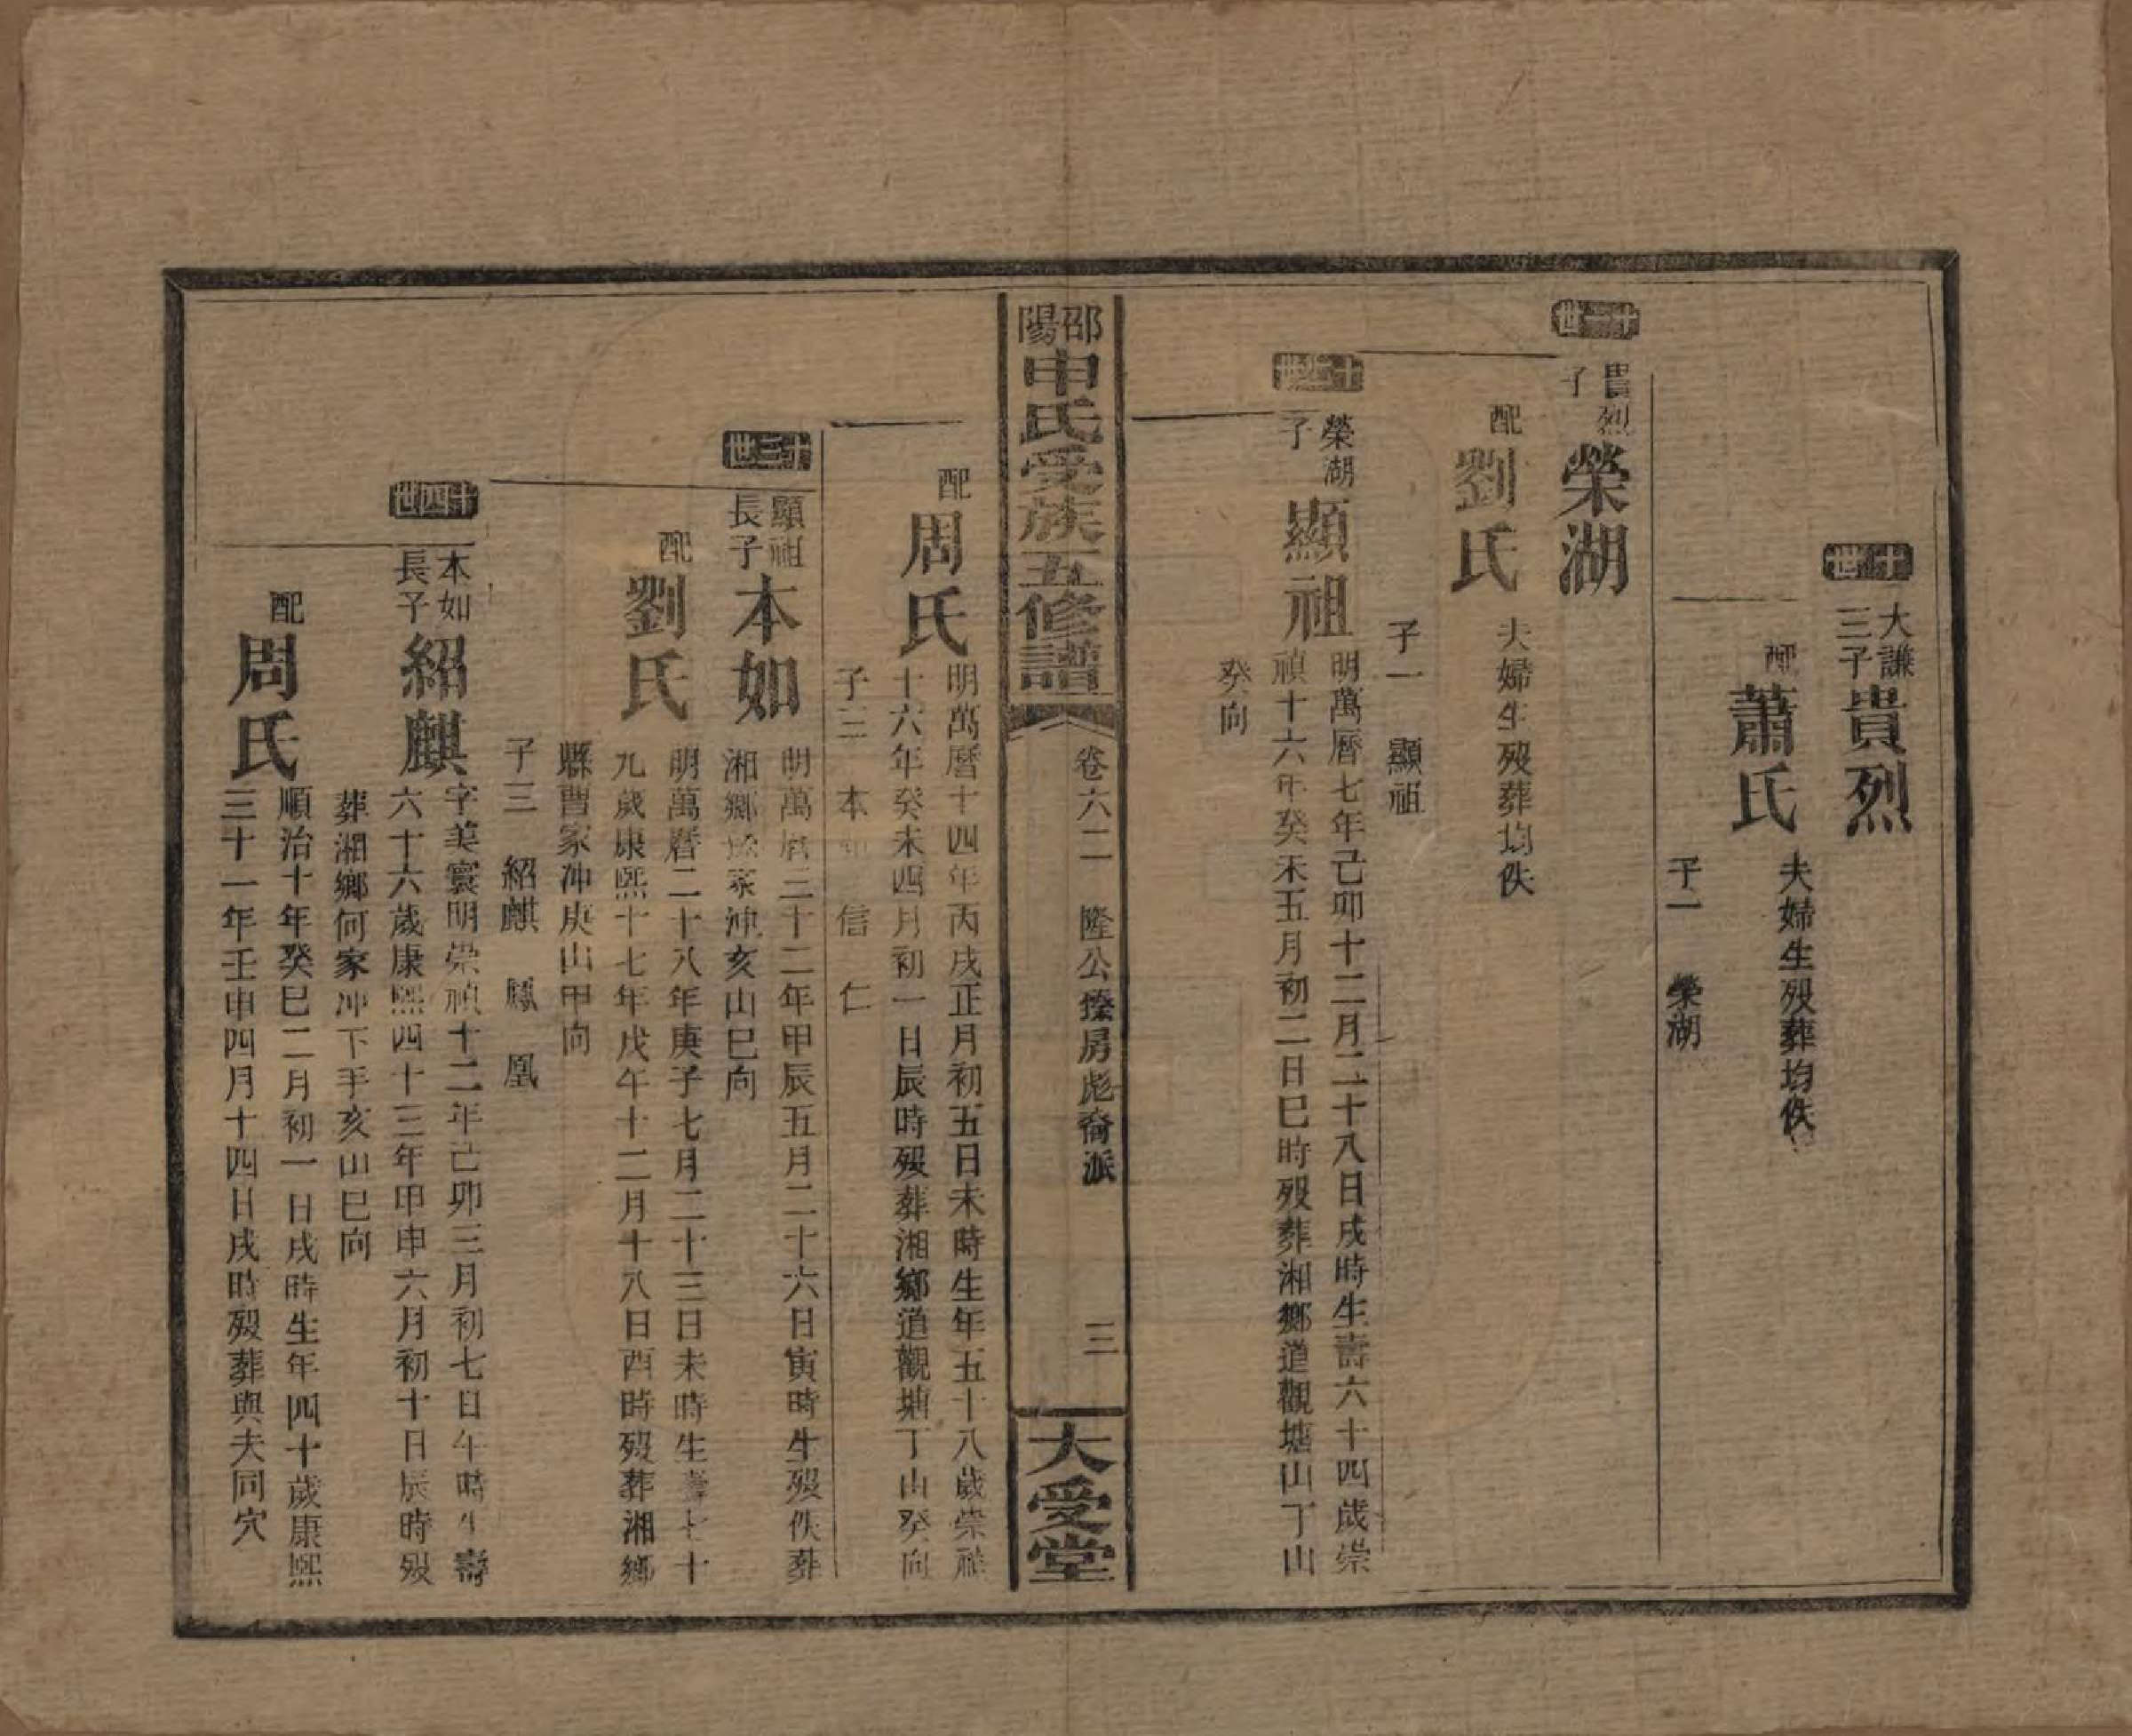 十世
大謙三子
貴烈
配
蕭氏
夫婦生殁葬均佚
子一 榮湖
十一世
貴烈子
榮湖
配
劉氏
夫婦生殁葬均佚
子一 顯祖
十二世
榮湖子
顯祖
明萬曆七年己卯十二月二十八日戌時生壽六十四歲崇
禎十六年癸未五月初二日巳時殁葬湘鄉道觀塘山丁山
癸向
邵陽申氏受族五修譜
卷六二 隆公搸房彪裔派
三
大受堂
配
周氏
明萬曆十四年丙戌正月初五日未時生年五十八歲崇禎
十六年癸未四月初一日辰時殁葬湘鄉道觀塘丁山癸向
子三 本如 信 仁
十三世
顯祖長子
本如
明萬曆三十二年甲辰五月二十六日寅時生殁佚葬
湘鄉 家冲亥山巳向
配
劉氏
明萬曆二十八年庚子七月二十三日未時生壽七十
九歲康熙十七年戊午十二月十八日酉時殁葬湘鄉
縣曹家冲庚山甲向
子三 紹麒 鳳 凰
十四世
本如長子
紹麒
字美寰明崇禎十二年己卯三月初七日午時生壽
六十六歲康熙四十三年甲申六月初十日辰時殁
葬湘鄉何家冲下手亥山巳向
配
周氏
順治十年癸巳二月初一日戌時生年四十歲康熙
三十一年壬申四月十四日戌時殁葬與夫同穴